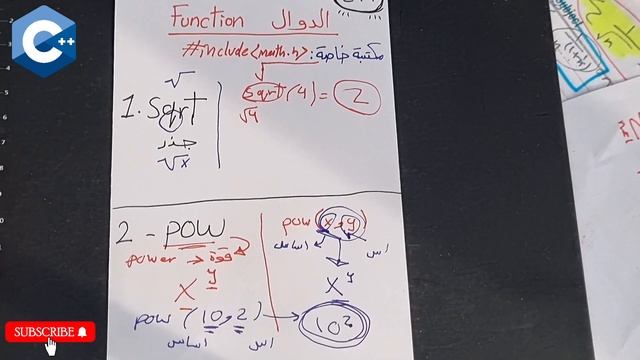 C++
Function الدوال
#include<math.h> : مكتبة خاصة
√
1. Sqrt
جذر
√x
sqrt(4) = 2
√4
2 - pow
power → قوة
x^y
pow (10,2) → 10²
اساس اس
pow(x,y)
اساس اس
x^y
SUBSCRIBE